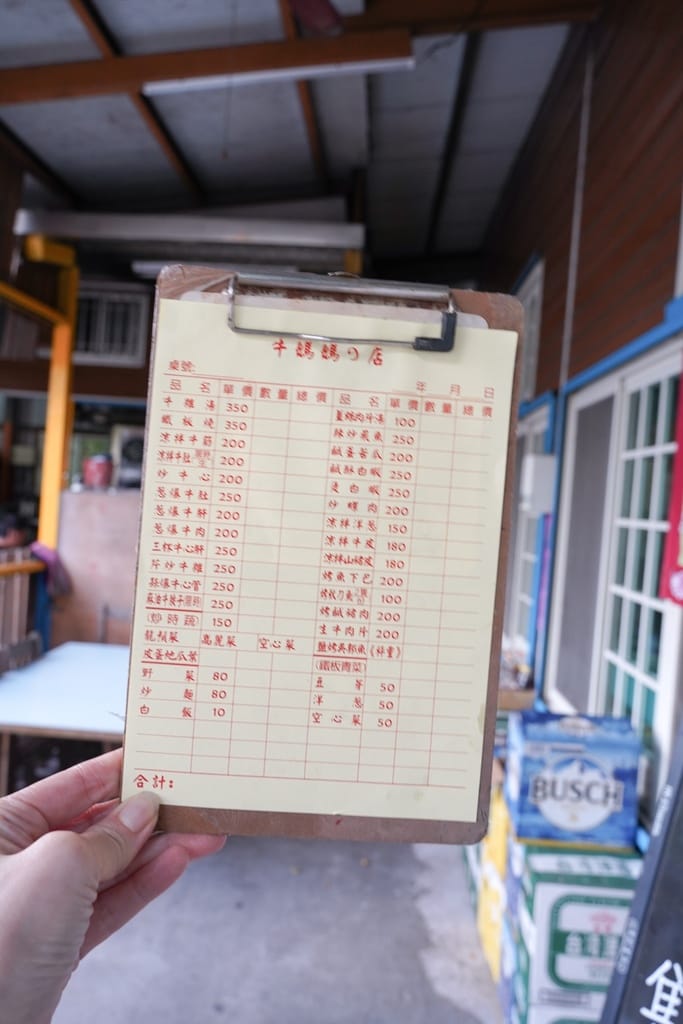 牛媽媽の店
桌號:
年 月 日
品名 單價 數量 總價 品名 單價 數量 總價
牛雜湯 350
鐵板燒 350
涼拌牛筋 200
涼拌牛肚 200
炒牛心 200
蔥爆牛肚 250
蔥爆牛肝 200
蔥爆牛肉 200
三杯牛心肝 250
芹炒牛雜 250
蒜爆牛心管 250
麻油牛腰子 250
(炒時蔬) 150
龍鬚菜 高麗菜 空心菜
皮蛋地瓜葉
野菜 80
炒麵 80
白飯 10
薑絲肉片湯 100
辣炒飛魚 250
鹹蛋苦瓜 200
鹹酥白蝦 250
燙白蝦 250
炒螺肉 200
涼拌洋蔥 150
涼拌牛皮 180
涼拌山豬皮 180
烤魚下巴 200
烤秋刀魚 100
烤鹹豬肉 200
生牛肉片 200
鹽烤吳郭魚(秤重)
(鐵板青菜)
豆芽 50
洋蔥 50
空心菜 50
合計:
BUSCH